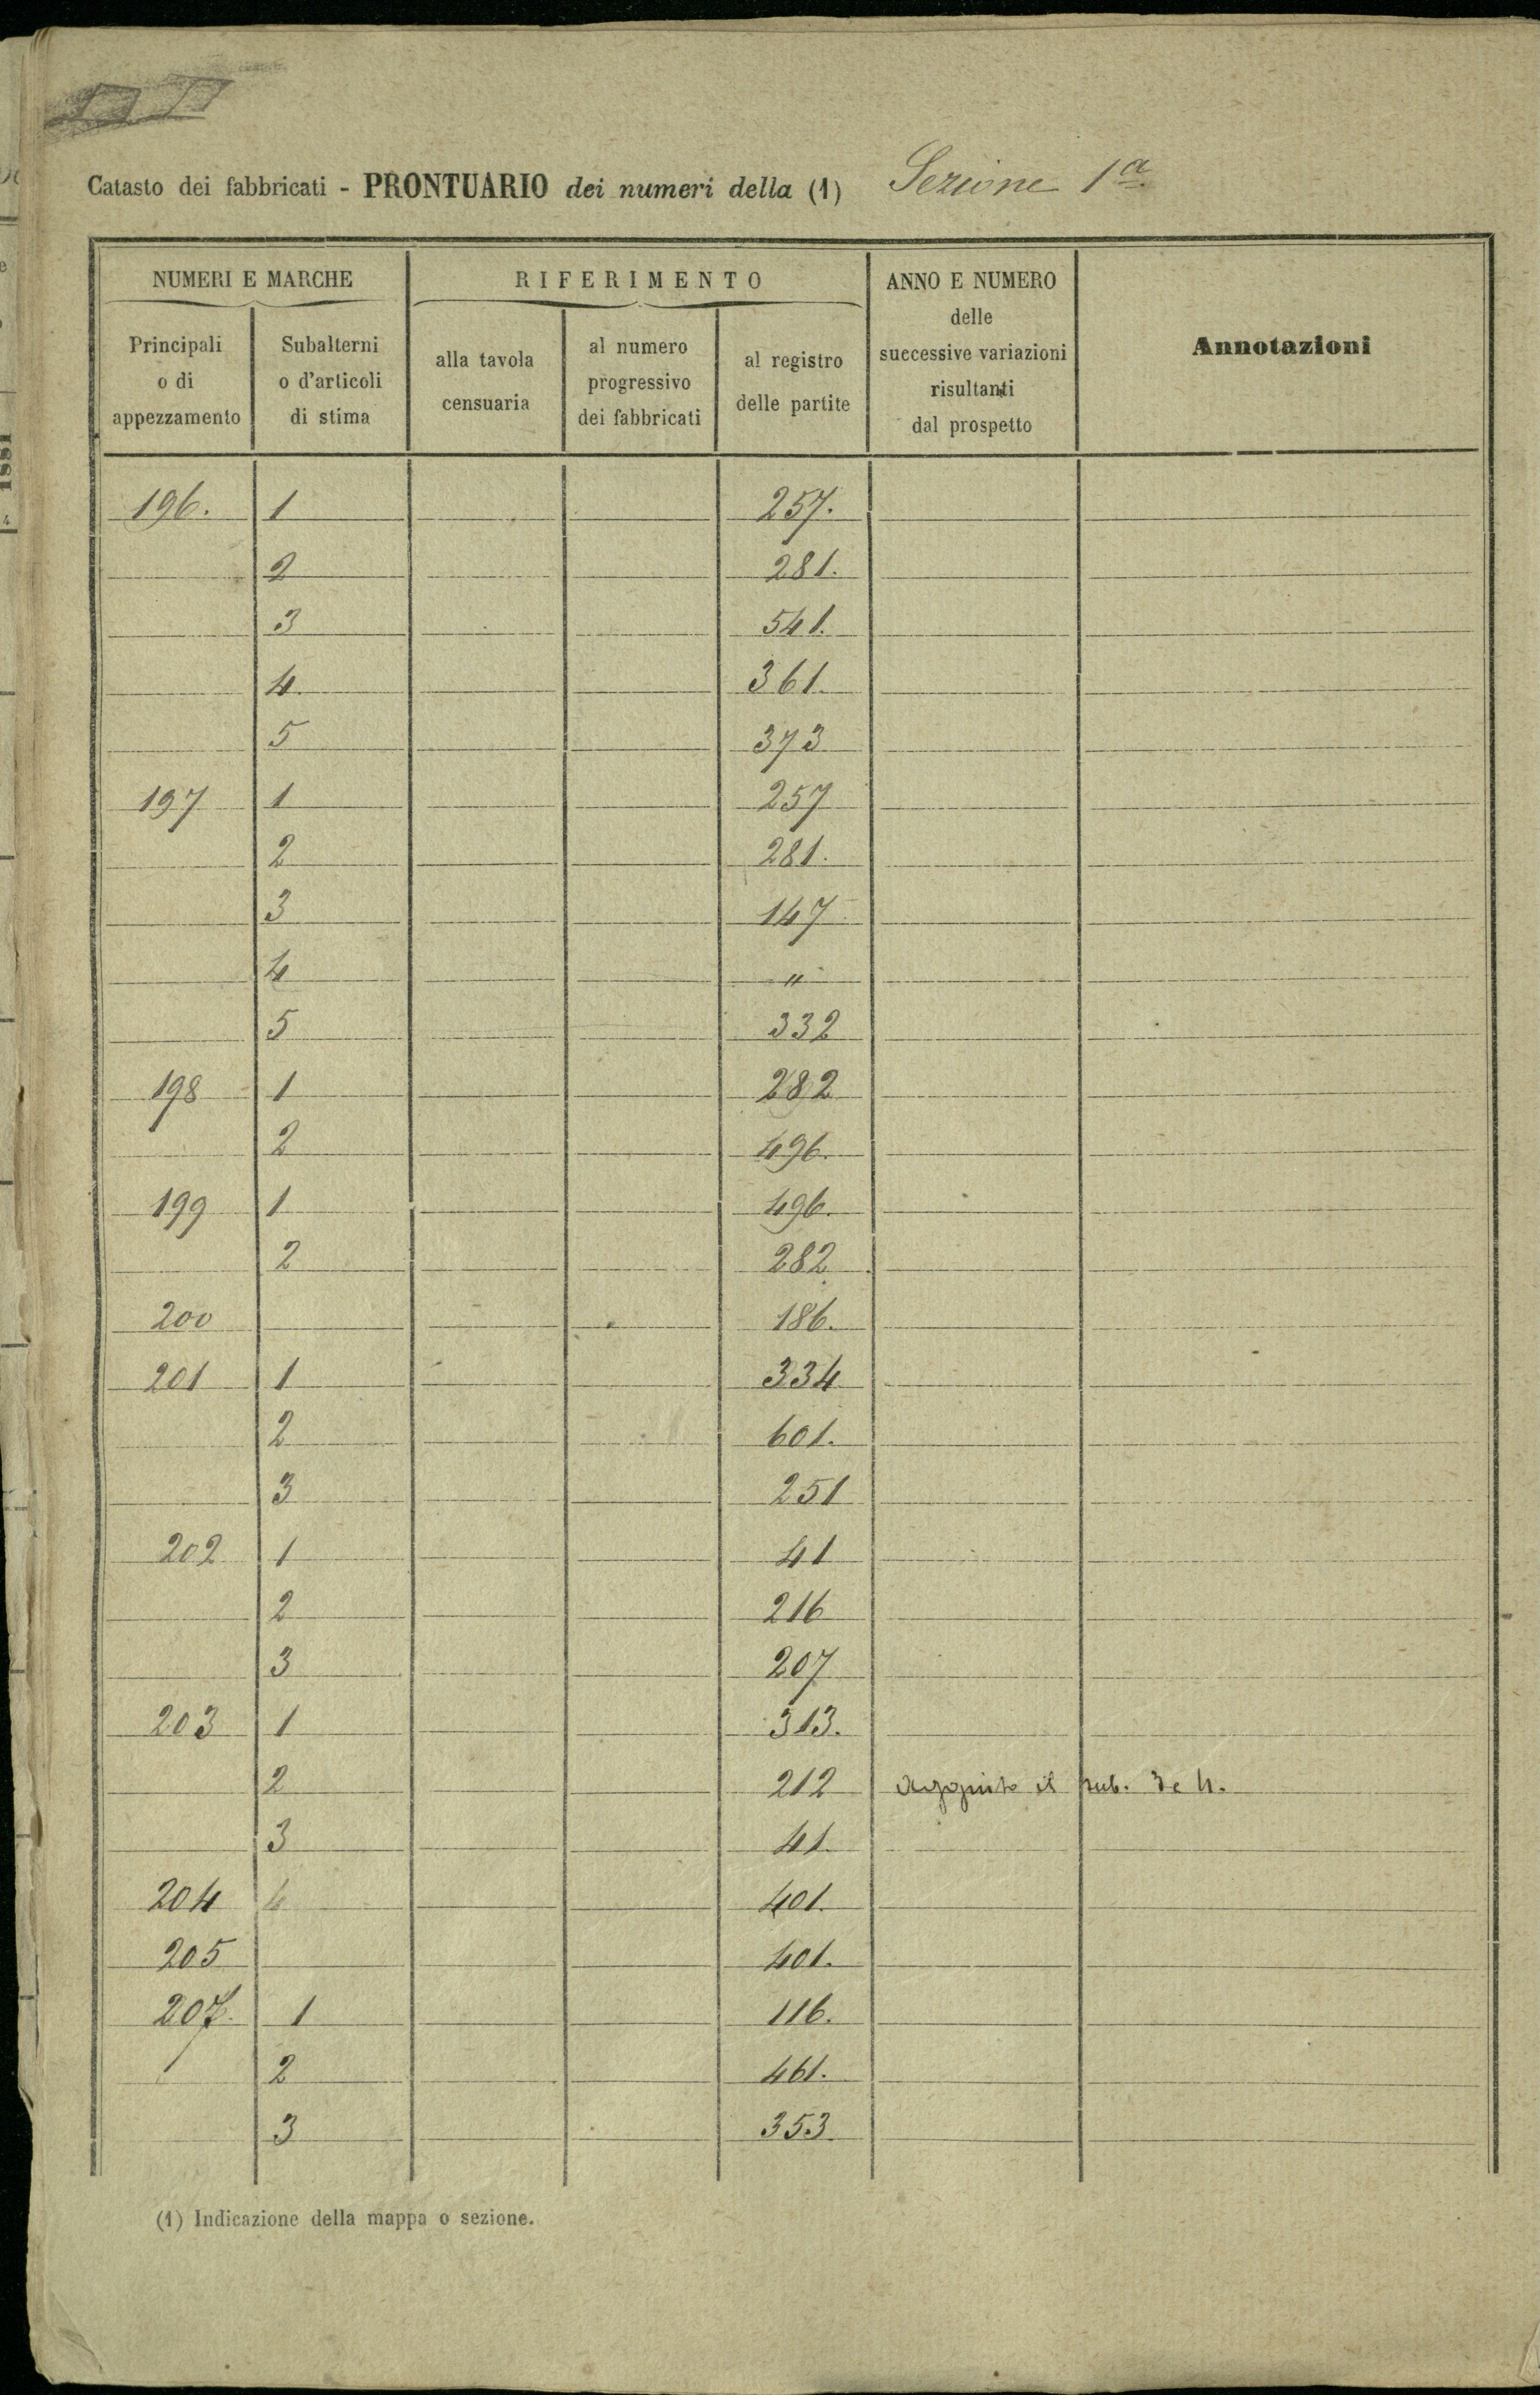 Catasto dei fabbricati - PRONTUARIO dei numeri della (1) Sezione 1a
NUMERI E MARCHE
Principali o di appezzamento
Subalterni o d'articoli di stima
RIFERIMENTO
alla tavola censuaria
al numero progressivo dei fabbricati
al registro delle partite
ANNO E NUMERO delle successive variazioni risultanti dal prospetto
Annotazioni
196. 1 257.
2 281.
3 541.
4. 361.
5 373
197 1 257
2 281.
3 147
4 "
5 332
198 1 282
2 496.
199 1 496.
2 282
200 186.
201 1 334
2 601.
3 251
202 1 41
2 216
3 207
203 1 313.
2 212 aggiunto il sub. 3 e 4.
3 41.
204 4 401.
205 401.
207. 1 116.
2 461.
3 353
(1) Indicazione della mappa o sezione.